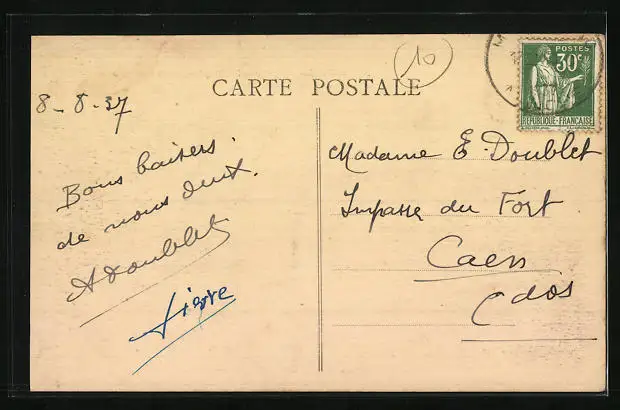 10
CARTE POSTALE
POSTES
30c
REPUBLIQUE-FRANÇAISE
8-8-37
Bons baisers.
de nous deux.
ADoublet
Madame E. Doublet
Impasse du Fort
Caen
Cdos